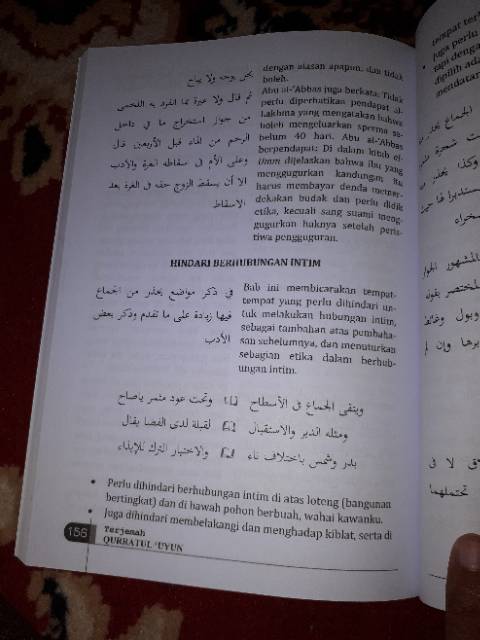 بحل بوجه ولا يباح
ثم قال ولا عبرة بما انفرد به اللخمى
من جواز استخراج ما فى داخل
الرحم من الماء قبل الأربعين قال
وعلى الأم فى سقاطه الغرة والأدب
الا أن يسقط الزوج حقه فى الغرة بعد
الاسقاط
dengan alasan apapun, dan tidak
boleh.
Abu al-'Abbas juga berkata: Tidak
perlu diperhatikan pendapat al-
Lakhma yang mengatakan bahwa
boleh mengeluarkan sperma se-
belum 40 hari. Abu al-'Abbas
berpendapat: Di dalam kitab el-
Umm dijelaskan bahwa ibu yang
menggugurkan kandungan itu
harus membayar denda memer-
dekakan budak dan perlu didik
etika, kecuali sang suami meng-
gugurkan haknya setelah peris-
tiwa pengguguran.
HINDARI BERHUBUNGAN INTIM
فى ذكر مواضع يحذر من الجماع
فيها زيادة على ما تقدم وذكر بعض
الأدب
Bab ini membicarakan tempat-
tempat yang perlu dihindari un-
tuk melakukan hubungan intim,
sebagai tambahan atas pembaha-
san sebelumnya, dan menuturkan
sebagian etika dalam berhub-
ungan intim.
ويتقى الجماع فى الأسطاح وتحت عود مثمر ياصاح
ومثله الدير والاستقبال لقبلة لدى الفضا يقال
بدر وشمس باختلاف ناء والاختيار الترك للإيذاء
• Perlu dihindari berhubungan intim di atas loteng (bangunan
bertingkat) dan di bawah pohon berbuah, wahai kawanku.
• Juga dihindari membelakangi dan menghadap kiblat, serta di
156
Terjemah
QURRATUL 'UYUN
juga perlu
الجماع